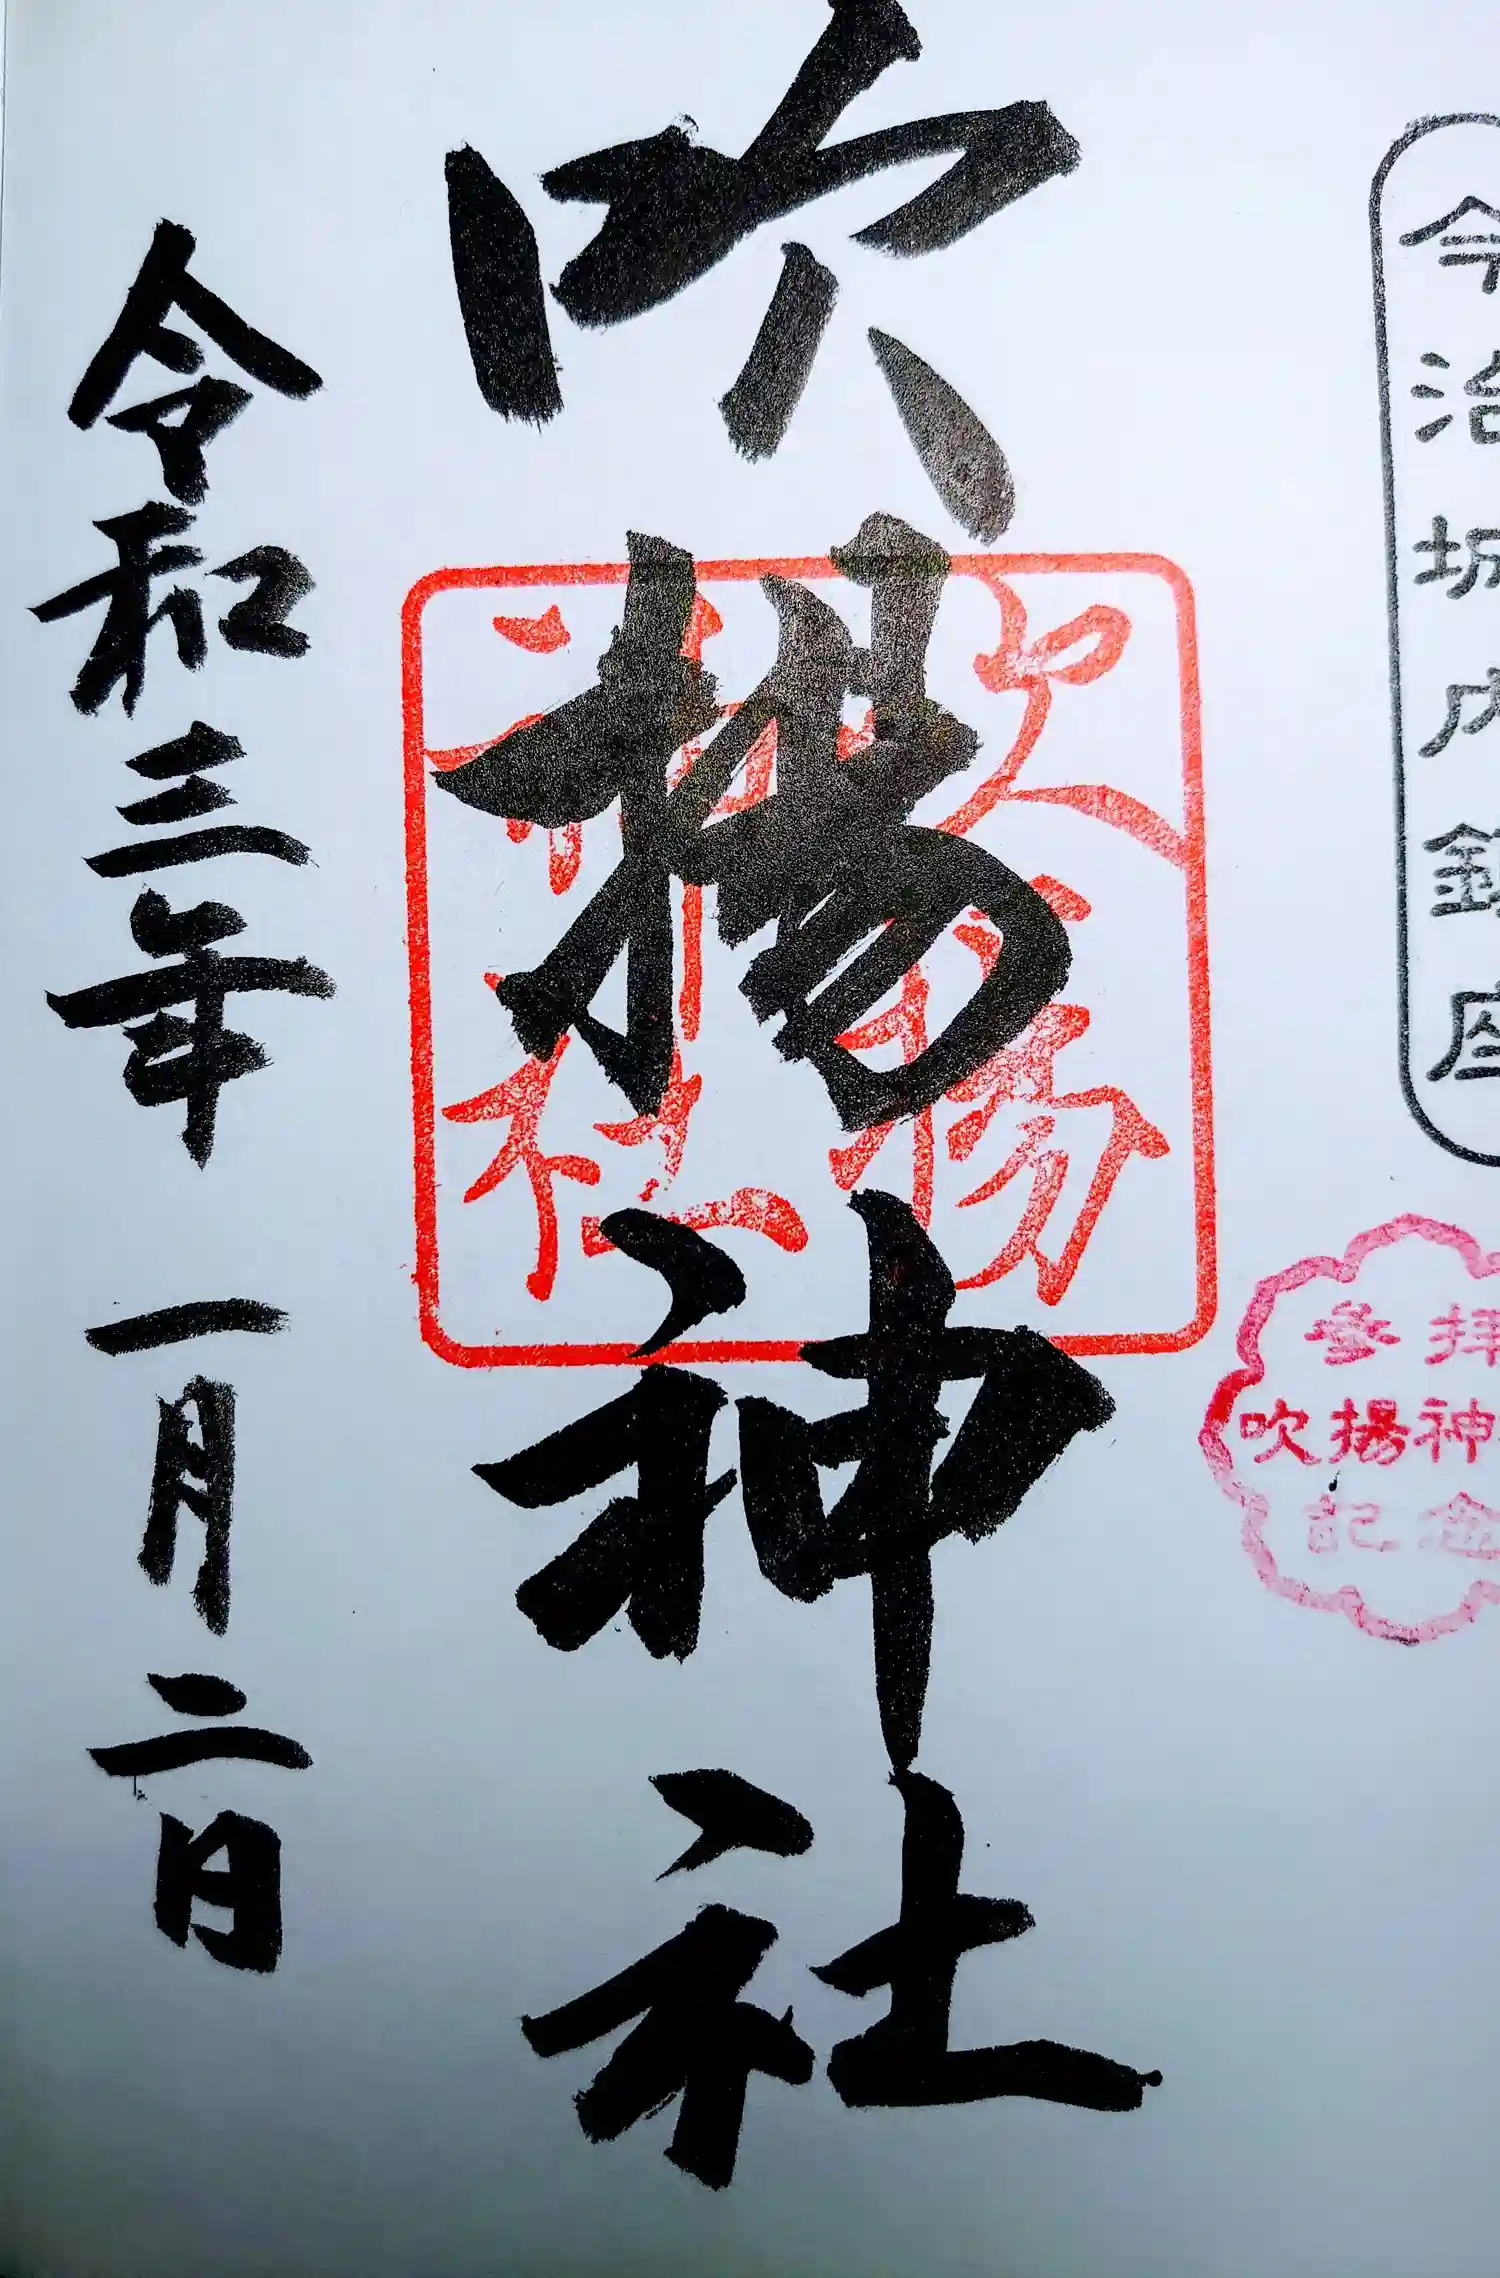 今治城内鎮座
参拝
吹揚神社
記念
吹揚神社
吹揚神社
令和三年 一月二日